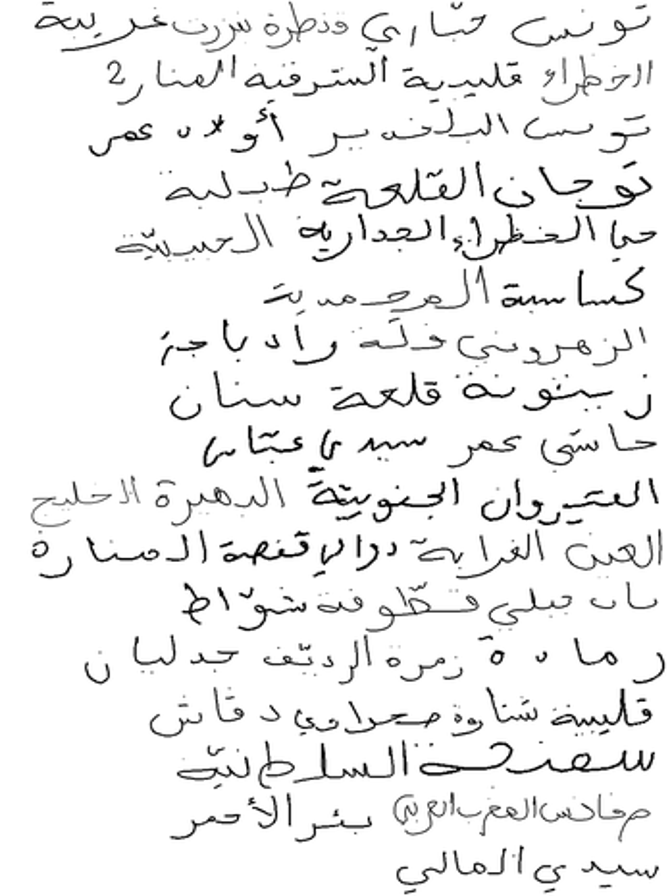 تونس حبّاري قنطرة بنزرت غريبة
الخظراء قليبية الشرقية المنار2
تونس البلفدير أولاد عمر
توجان القلعة طبلبة
حي الخظراء الجدارية الحبيبيّة
كساسبة المرحمدية
الزهروني خلّة راد باجة
زيتونة قلعة سنان
حاشي عمر سيدي عبّاس
القيروان الجنوبيّة الدهيرة الخليج
العين الغرابة دوالي قفصة المنارة
باب قبلي قطّوفة شوّاط
رمادة زمرة الرديّف جدليان
قليبية شناوة صحراوي دقاش
السلطانيّة
صفاقس المغرب العربي بئر الأحمر
سيدي المالي